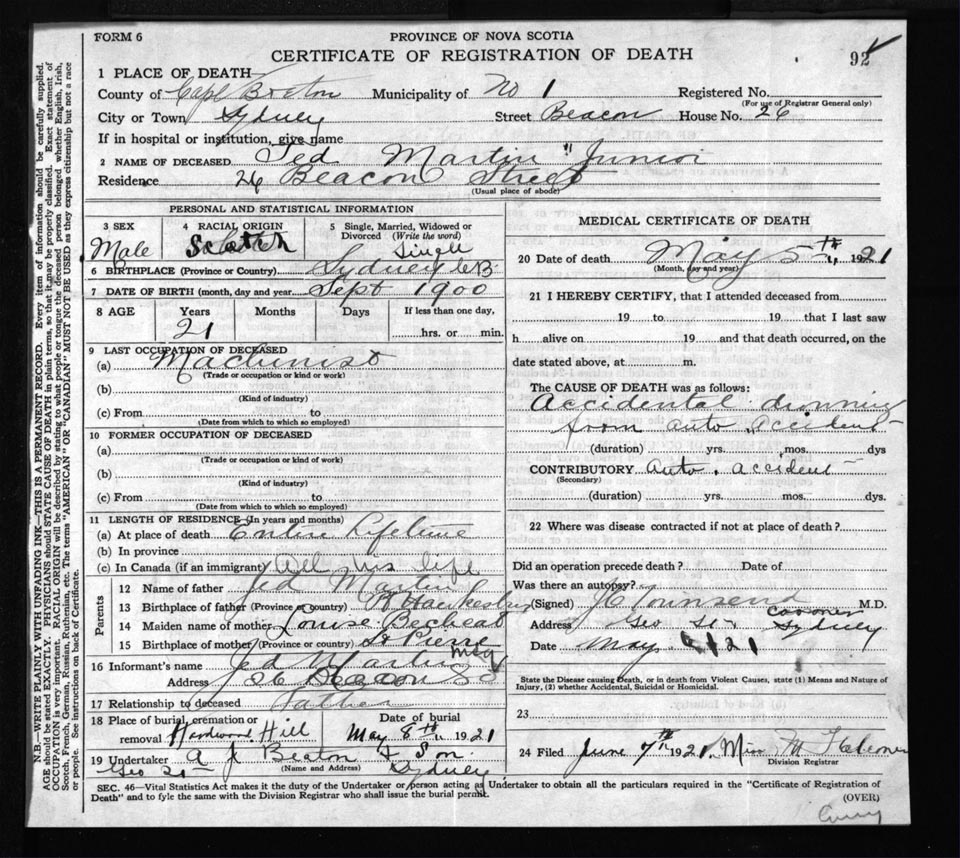 FORM 6
PROVINCE OF NOVA SCOTIA
CERTIFICATE OF REGISTRATION OF DEATH
92
1 PLACE OF DEATH
County of Cape Breton Municipality of No 1 Registered No.
(For use of Registrar General only)
City or Town Sydney Street Beacon House No. 26
If in hospital or institution, give name
2 NAME OF DECEASED Ted Martin "Junior
Residence 26 Beacon Street
(Usual place of abode)
PERSONAL AND STATISTICAL INFORMATION
3 SEX 4 RACIAL ORIGIN 5 Single, Married, Widowed or Divorced (Write the word)
Male Scotch Single
6 BIRTHPLACE (Province or Country) Sydney C.B.
7 DATE OF BIRTH (month, day and year) Sept 1900
8 AGE Years Months Days If less than one day,
21 hrs. or min.
9 LAST OCCUPATION OF DECEASED
(a) Machinist
(Trade or occupation or kind or work)
(b)
(Kind of industry)
(c) From to
(Date from which to which so employed)
10 FORMER OCCUPATION OF DECEASED
(a)
(Trade or occupation or kind of work)
(b)
(Kind of industry)
(c) From to
(Date from which to which so employed)
11 LENGTH OF RESIDENCE (In years and months)
(a) At place of death Entire Lifetime
(b) In province
(c) In Canada (if an immigrant) All his life
Parents
12 Name of father Ted Martin
13 Birthplace of father (Province or country) Pt Hawkesbury
14 Maiden name of mother Louise
15 Birthplace of mother (Province or country) St Pierre
Miq
16 Informant's name Ted Martin
Address 26 Beacon St
17 Relationship to deceased Father
18 Place of burial, cremation or removal Hardwood Hill Date of burial May 8th 1921
19 Undertaker A J Beaton & Son
(Name and Address)
Geo St Sydney
MEDICAL CERTIFICATE OF DEATH
20 Date of death May 5th, 1921
(Month, day and year)
21 I HEREBY CERTIFY, that I attended deceased from
19 to 19 that I last saw
h alive on 19 and that death occurred, on the
date stated above, at m.
The CAUSE OF DEATH was as follows:
Accidental drowning
from auto accident
(duration) yrs. mos. dys
CONTRIBUTORY auto accident
(Secondary)
(duration) yrs. mos. dys.
22 Where was disease contracted if not at place of death?
Did an operation precede death? Date of
Was there an autopsy?
(Signed) Townsend M.D.
coroner
Address Geo St Sydney
Date May 21
State the Disease causing Death, or in death from Violent Causes, state (1) Means and Nature of
Injury, (2) whether Accidental, Suicidal or Homicidal.
23
24 Filed June 7th 1921 Miss M
Division Registrar
SEC. 46—Vital Statistics Act makes it the duty of the Undertaker or person acting as Undertaker to obtain all the particulars required in the "Certificate of Registration of
Death" and to fyle the same with the Division Registrar who shall issue the burial permit.
(OVER)
N.B.—WRITE PLAINLY WITH UNFADING INK—THIS IS A PERMANENT RECORD. Every item of information should be carefully supplied.
AGE should be stated EXACTLY. PHYSICIANS should STATE CAUSE OF DEATH in plain terms, so that it may be properly classified. Exact statement of
OCCUPATION is very important. RACIAL ORIGIN will be described by stating to what people or tongue the deceased person belonged whether English, Irish,
Scotch, French, German, Russian, Ruthenian, etc. The terms "AMERICAN" OR "CANADIAN" MUST NOT BE USED as they express citizenship but not a race
or people. See instructions on back of Certificate.